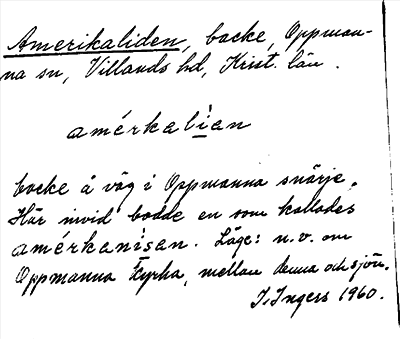 Amerikaliden, backe, Oppman-
na sn, Villands hd, Krist. län.
amérkalian
backe å väg i Oppmanna snärje.
Här invid bodde en som kallades
amérkanisan. Läge: n.v. om
Oppmanna kyrka, mellan denna och sjön.
I. Ingers 1960.